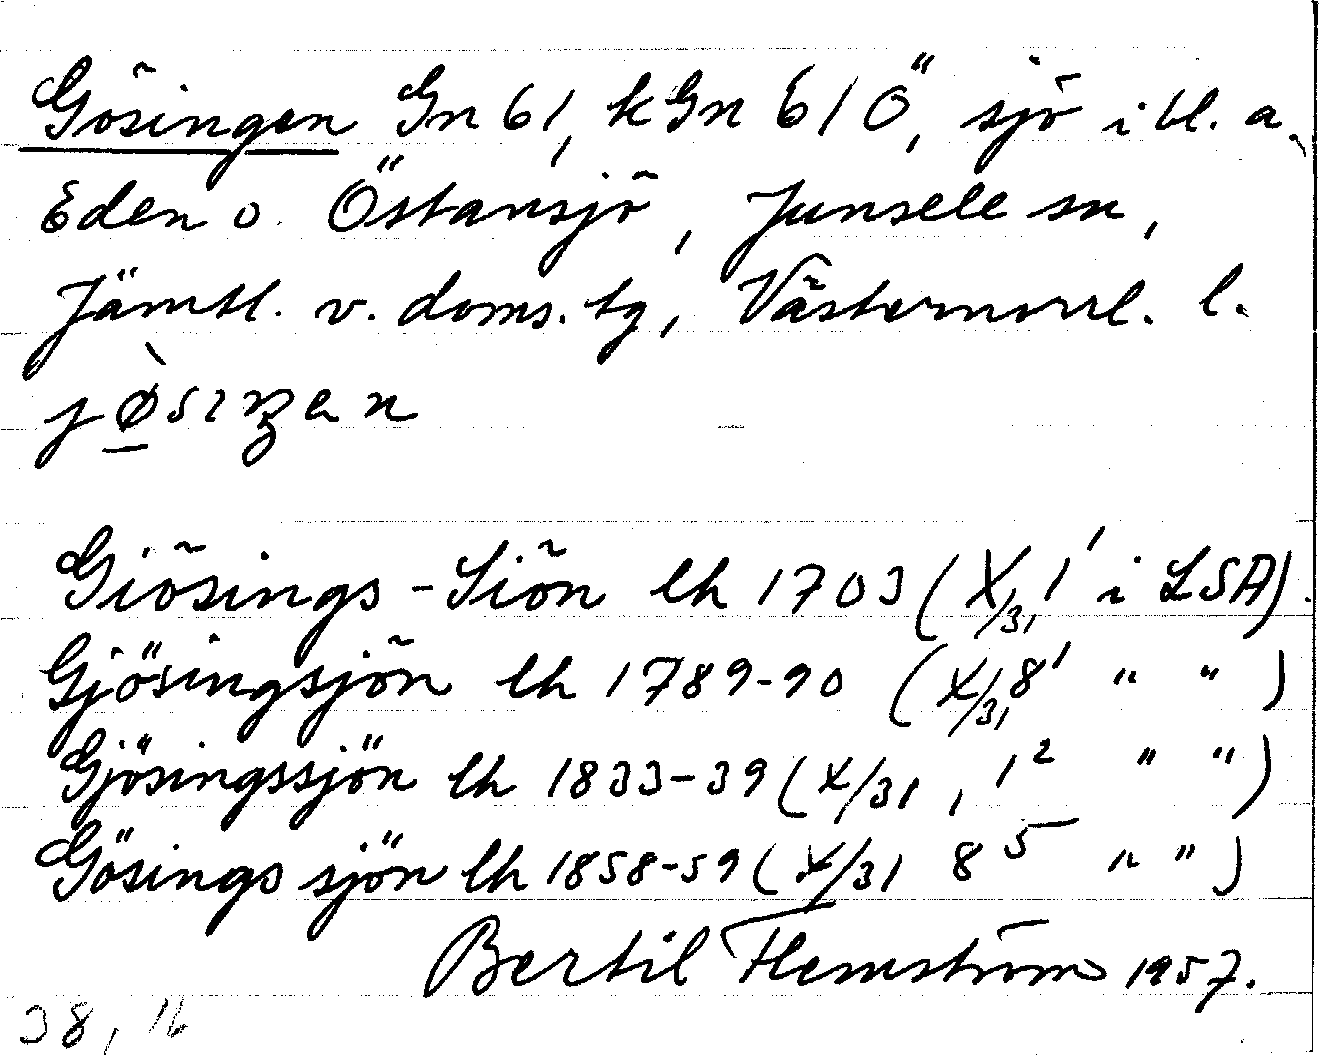 Gösingen Gn 61, kGn 61 Ö, sjö i bl. a.
Eden o. Östansjö, Junsele sn,
Jämtl. v. doms. tg, Västernorrl. l.
jø̀siŋen
Giösings-Siön lh 1703 (X/31, 1¹ i LSA).
Gjösingsjön lh 1789-90 (X/31, 8¹ " ")
Gjösingssjön lh 1833-39 (X/31, 1² " ")
Gösings sjön lh 1858-59 (X/31 8⁵ " ")
Bertil Flemström 1957.
38, 16